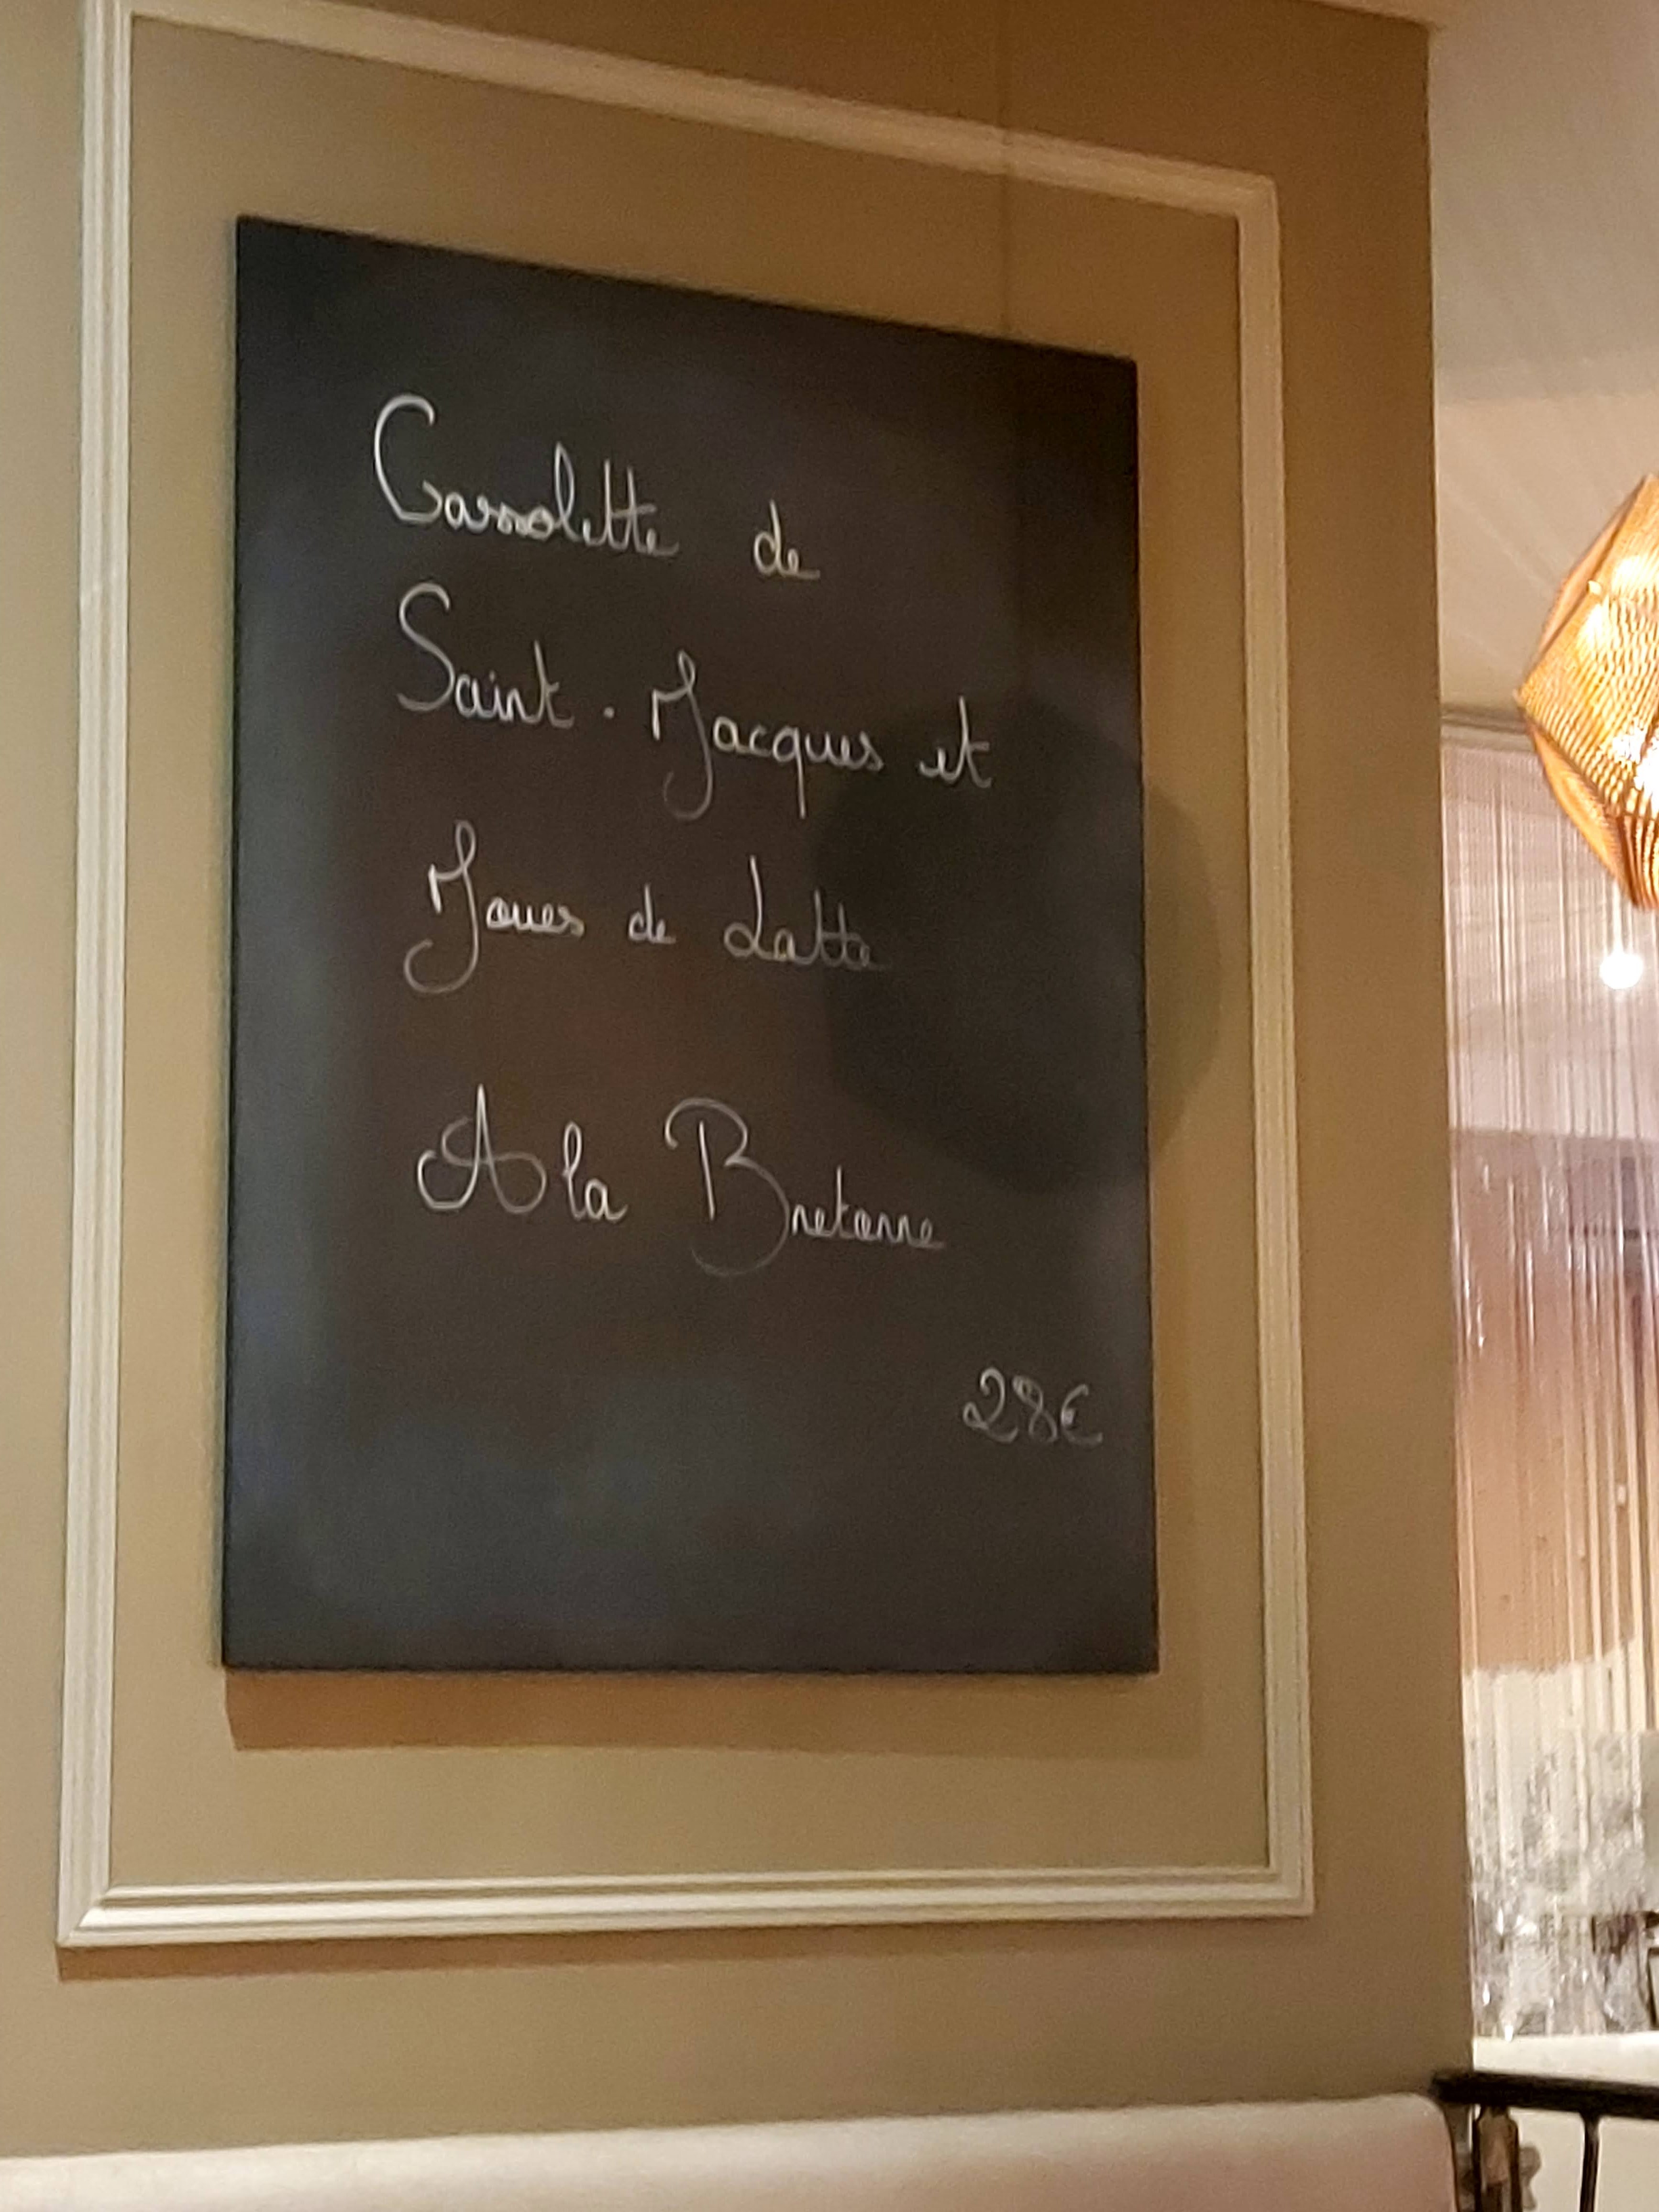 Cassolette de
Saint-Jacques et
Joues de Lotte
A la Bretonne
28€